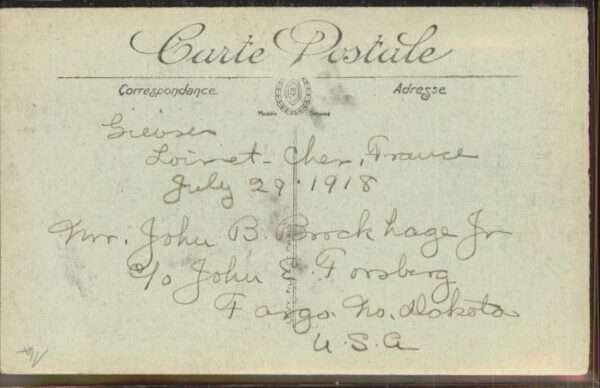 Carte Postale
Correspondance
Adresse
Gievres
Loir-et-Cher, France
July 29-1918
Mr. John B. Brockhage Jr
c/o John E. Forsberg
Fargo. No. Dakota
U.S.A